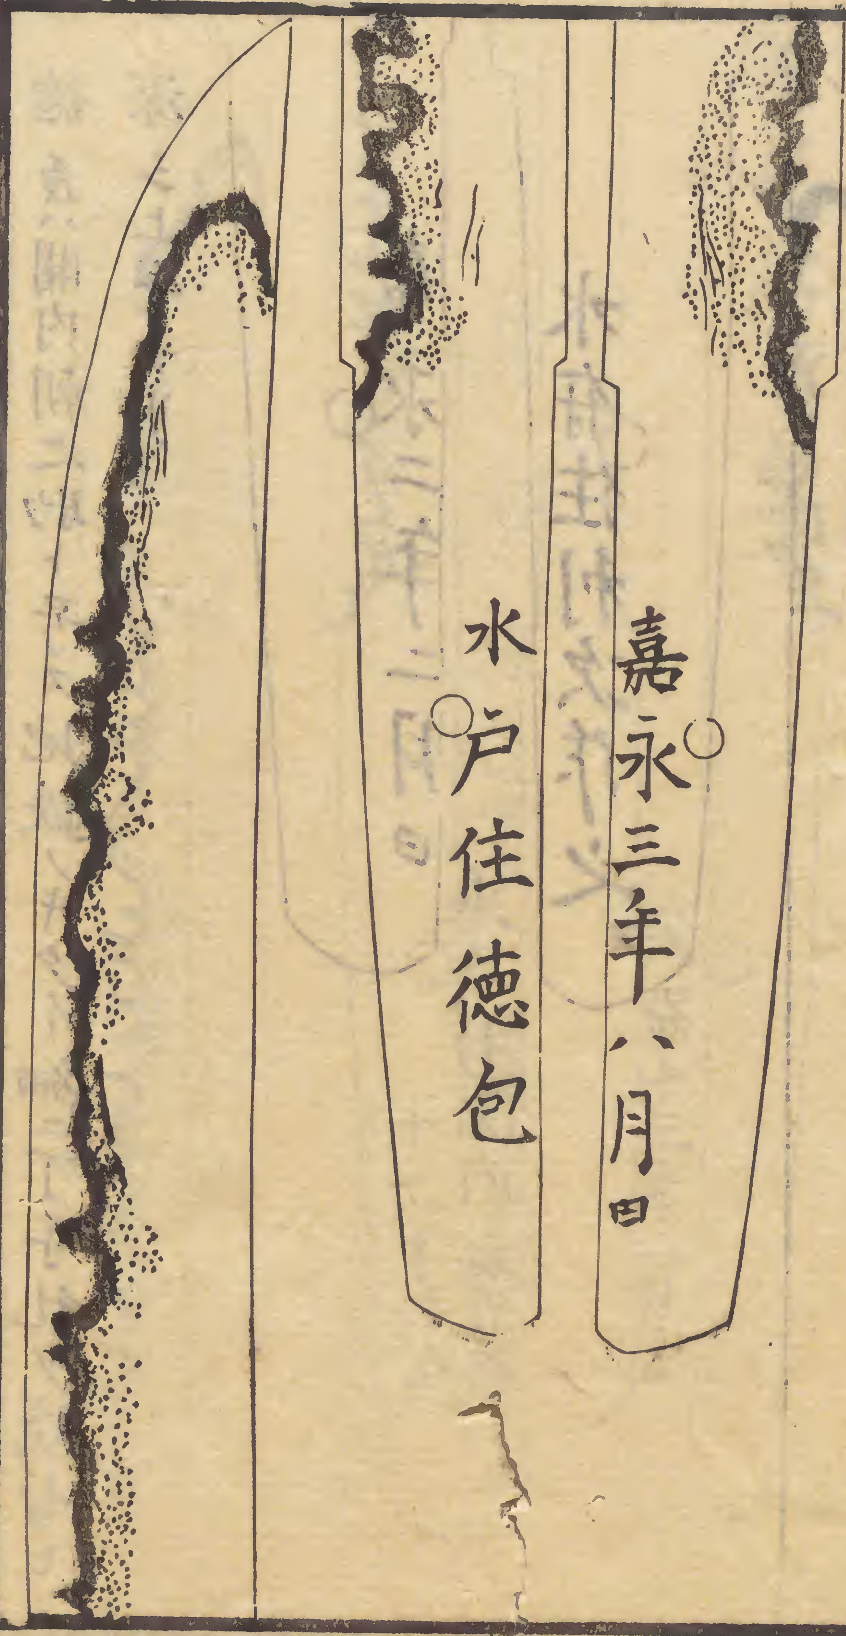 嘉永三年八月日
水戸住德包